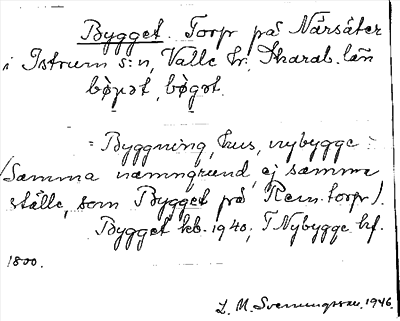 Bygget. Torp på Närsäter
i Istrum s:n, Valle hr. Skarab. län
bỳgət, bỳgət.
= Byggning, hus, nybygge
(Samma namngrund, ej samma
ställe, som Bygget på Rem.torp).
Bygget kb. 1940, T Nybygge hf.
1800.
L. M. Svenungsson. 1946.